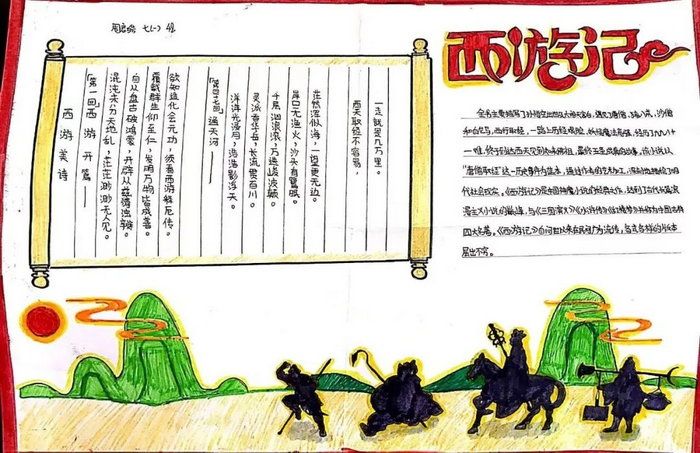 七(一) 42
西游记
西游美诗
「第一回」西游开篇——
混沌未分天地乱,茫茫渺渺无人见。
自从盘古破鸿蒙,开辟从兹清浊辨。
覆载群生仰至仁,发明万物皆成善。
欲知造化会元功,须看西游释厄传。
「第四十七回」通天河——
洋洋光浸月,浩浩影浮天。
灵派吞华岳,长流贯百川。
千层汹浪滚,万迭峻波颠。
岸口无渔火,沙头有鹭眠。
茫然浑似海,一望更无边。
西天取经不容易,
一走就是几万里。
全书主要描写了孙悟空出世及大闹天宫后,遇见了唐僧、猪八戒、沙僧
和白龙马,西行取经,一路上历经艰险,降妖除魔,经历了九九八十
一难,终于到达西天见到如来佛祖,最终五圣成真的故事。该小说以
“唐僧取经”这一历史事件为蓝本,通过作者的艺术加工,深刻地描绘了明
代社会现实。《西游记》是中国神魔小说的经典之作,达到了古代长篇浪
漫主义小说的巅峰,与《三国演义》《水浒传》《红楼梦》并称为中国古典
四大名著。《西游记》自问世以来在民间广为流传,各式各样的版本
层出不穷。